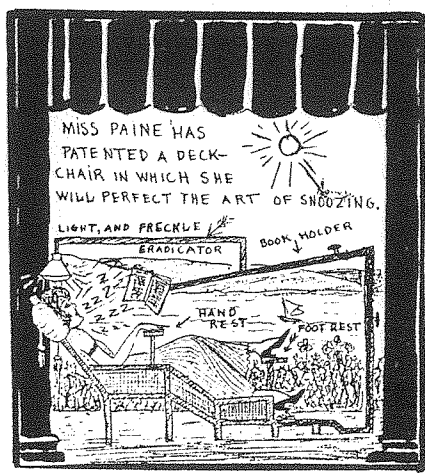 MISS PAINE HAS
PATENTED A DECK-
CHAIR IN WHICH SHE
WILL PERFECT THE ART OF SNOOZING.
LIGHT, AND FRECKLE
ERADICATOR
BOOK HOLDER
ZZZZ
ZZZZ
ZZZZ
ZZZZ
HAND
REST
FOOT REST